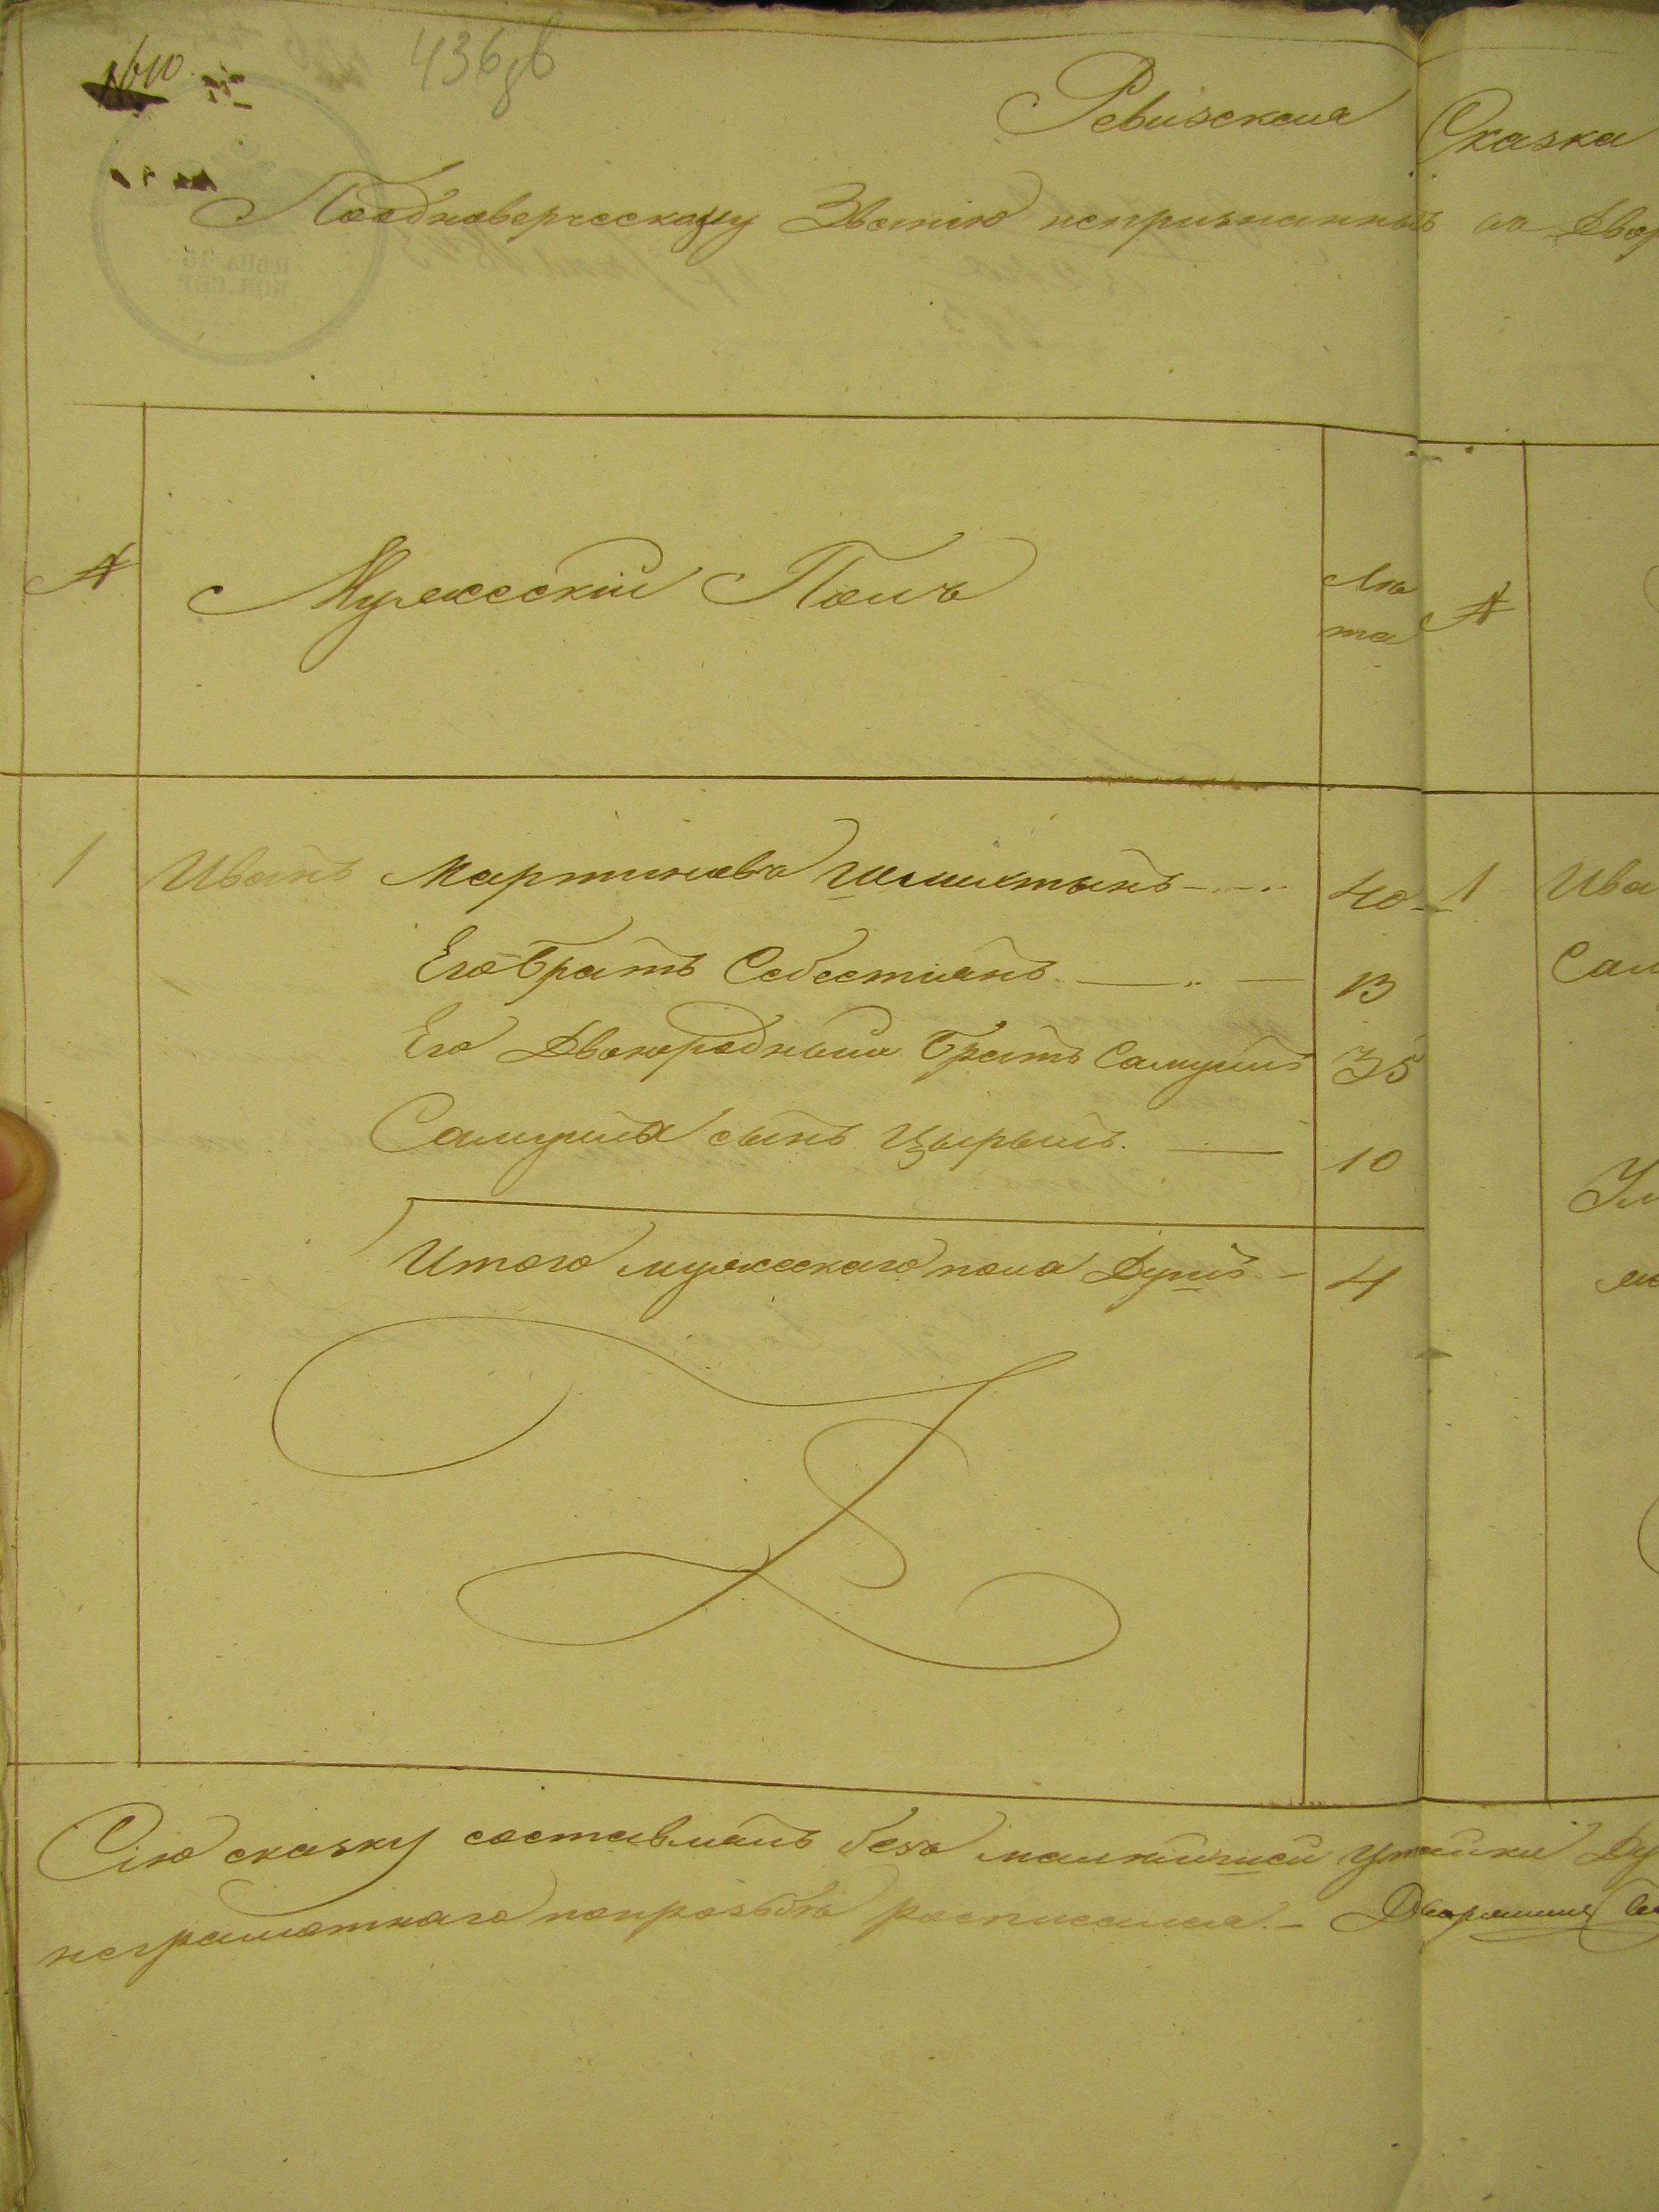 610
436 об
Ревизская Сказка
Пооднодворческому Званию непризнанныхъ въ Двор
№ Мужескій Полъ Лѣ
та №
1 Иванъ Мартиновъ 40 1 Ива
Его Братъ Себестиянъ 13 Сам
Его Двоюродный Братъ Самуилъ 35
Самуила сынъ Цырыль 10
Итого мужескаго пола Душъ 4
Сію сказку составилъ безъ малѣйшей утайки Ду
неграмотнаго попрозьбѣ росписался. Дворянинъ